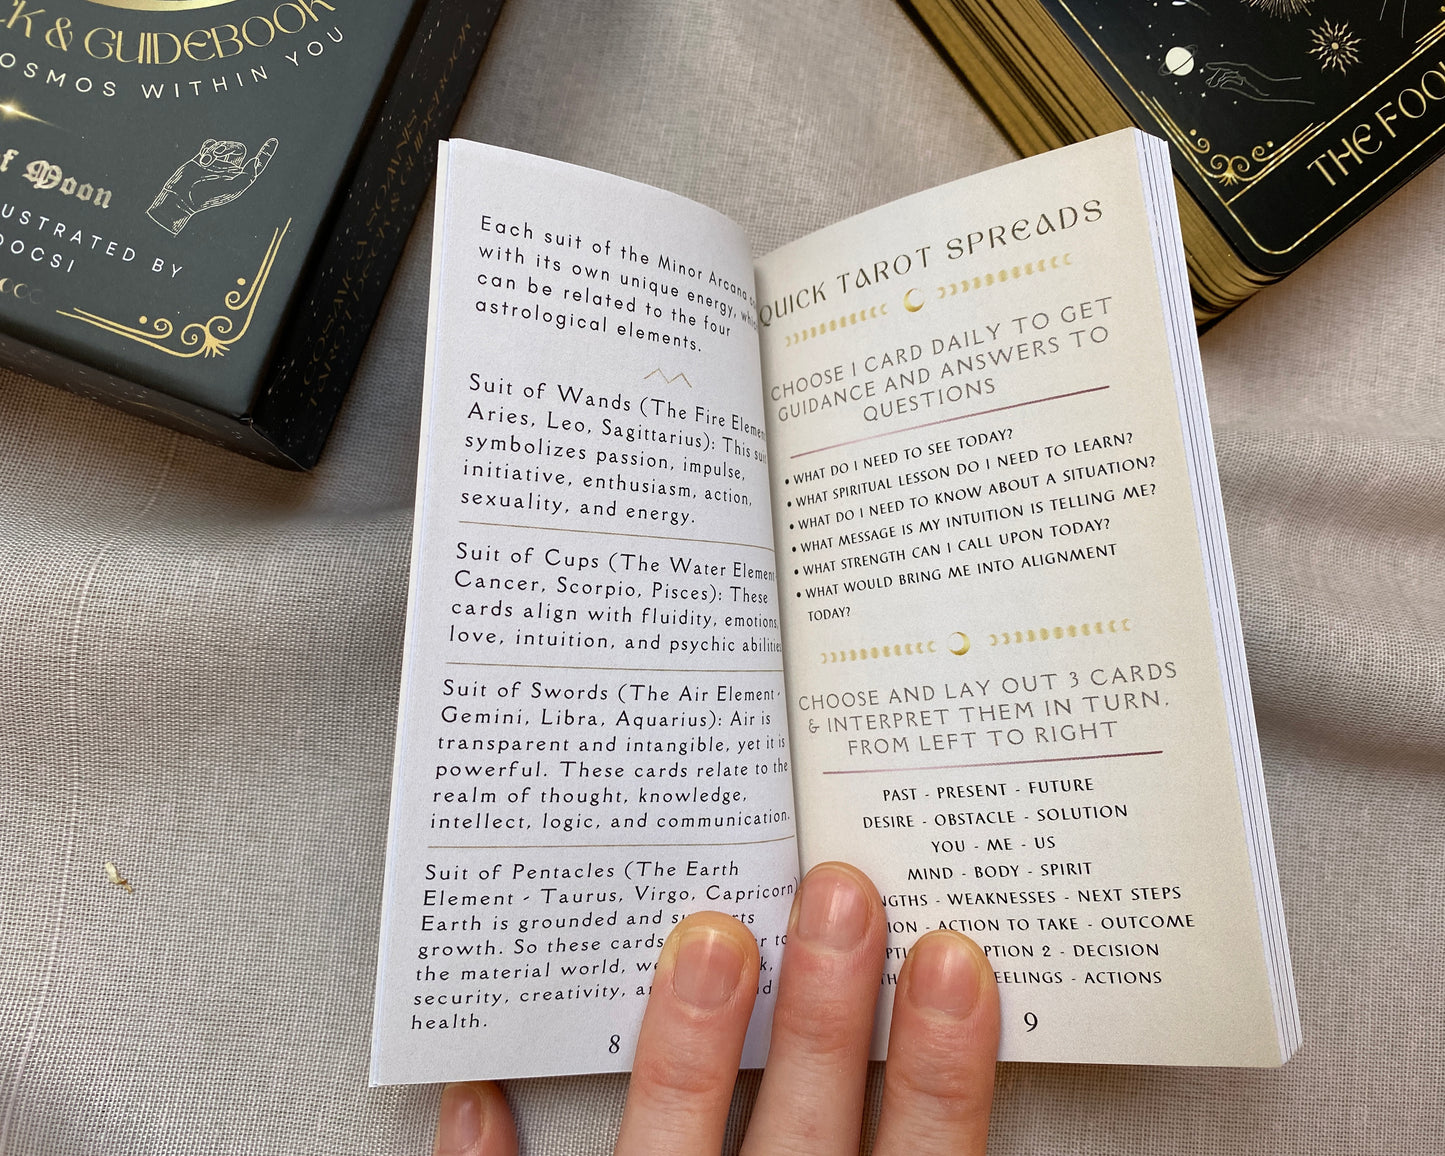 & GUIDEBOOK
COSMOS WITHIN YOU
of Moon
ILLUSTRATED BY
DOCSI
COSMIC
TAROT DECK & GUIDEBOOK
THE FOOL
Each suit of the Minor Arcana
with its own unique energy,
can be related to the four
astrological elements.
Suit of Wands (The Fire Element
Aries, Leo, Sagittarius): This suit
symbolizes passion, impulse,
initiative, enthusiasm, action,
sexuality, and energy.
Suit of Cups (The Water Element
Cancer, Scorpio, Pisces): These
cards align with fluidity, emotions,
love, intuition, and psychic abilities
Suit of Swords (The Air Element -
Gemini, Libra, Aquarius): Air is
transparent and intangible, yet it is
powerful. These cards relate to the
realm of thought, knowledge,
intellect, logic, and communication.
Suit of Pentacles (The Earth
Element - Taurus, Virgo, Capricorn)
Earth is grounded and
growth. So these cards to
the material world,
security, creativity,
health.
8
QUICK TAROT SPREADS
CHOOSE 1 CARD DAILY TO GET
GUIDANCE AND ANSWERS TO
QUESTIONS
• WHAT DO I NEED TO SEE TODAY?
• WHAT SPIRITUAL LESSON DO I NEED TO LEARN?
• WHAT DO I NEED TO KNOW ABOUT A SITUATION?
• WHAT MESSAGE IS MY INTUITION IS TELLING ME?
• WHAT STRENGTH CAN I CALL UPON TODAY?
• WHAT WOULD BRING ME INTO ALIGNMENT
TODAY?
CHOOSE AND LAY OUT 3 CARDS
& INTERPRET THEM IN TURN,
FROM LEFT TO RIGHT
PAST - PRESENT - FUTURE
DESIRE - OBSTACLE - SOLUTION
YOU - ME - US
MIND - BODY - SPIRIT
- WEAKNESSES - NEXT STEPS
- ACTION TO TAKE - OUTCOME
OPTION 2 - DECISION
FEELINGS - ACTIONS
9